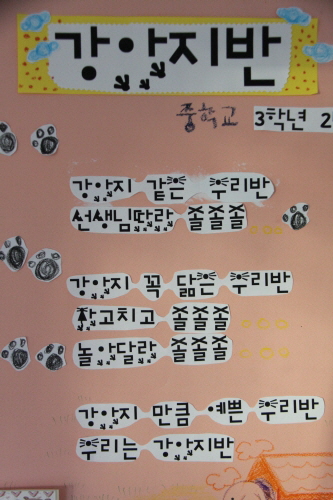 강아지반
중학교 3학년 2
강아지 같은 우리반
선생님따라 졸졸졸
강아지 꼭 닮은 우리반
장고치고 졸졸졸
놀아달라 졸졸졸
강아지 만큼 예쁜 우리반
우리는 강아지반